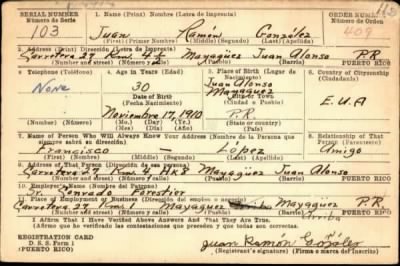 SERIAL NUMBER
Número de Serie
1. Name (Print) Nombre (Letra de Imprenta)
ORDER NUMBER
Número de Orden
103
Juan Ramón González
409
(First) (Primer Nombre) (Middle) (Segundo) (Last) (Apellido)
2. Address (Print) Dirección (Letra de Imprenta)
Carretera 27 Km. 4 Mayagüez Juan Alonso P.R.
(Number and street) (Número y calle) PUERTO RICO
3. Telephone (Teléfono)
4. Age in Years (Edad)
5. Place of Birth (Lugar de Nacimiento)
6. Country of Citizenship (Ciudadanía)
None
30
Juan Alonso
Mayagüez
Date of Birth
(Fecha Nacimiento)
(Ciudad o Pueblo)
E.U.A
Noviembre 17, 1910
P.R.
(Number) (Número)
(Mo.) (Mes) (Day) (Día) (Yr.) (Año)
(State or country) (País)
7. Name of Person Who Will Always Know Your Address (Nombre de la Persona que siempre sabrá su dirección)
8. Relationship of That Person (Parentesco)
Francisco — López Amigo
(First) (Nombre) (Middle) (Segundo) (Last) (Apellido)
9. Address of That Person (Dirección de esa Persona)
Carretera 27 Km. 4 Hk8 Mayagüez Juan Alonso
(Number and street) (Número y calle) PUERTO RICO
10. Employer's Name (Nombre del Patrono)
Dr. Conrado Forestier
11. Place of Employment or Business (Dirección del empleo o negocio)
Carretera 27 Km. 1 Mayagüez Mayagüez P.R.
Arriba
(Number and street) (Número y calle) PUERTO RICO
I Affirm That I Have Verified Above Answers and That They Are True.
(Afirmo que he verificado las contestaciones que preceden y que todas son correctas.)
REGISTRATION CARD
D. S. S. Form 1
(PUERTO RICO)
Juan Ramón Gozóles
(Registrant's signature) (Firma o marca del Inscrito)